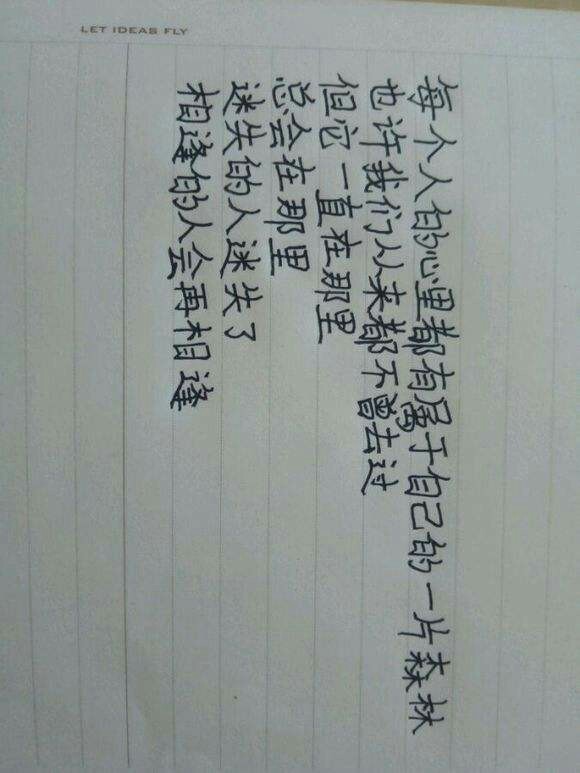 LET IDEAS FLY
每个人的心里都有属于自己的一片森林
也许我们从来都不曾去过
但它一直在那里
总会在那里
迷失的人迷失了
相逢的人会再相逢